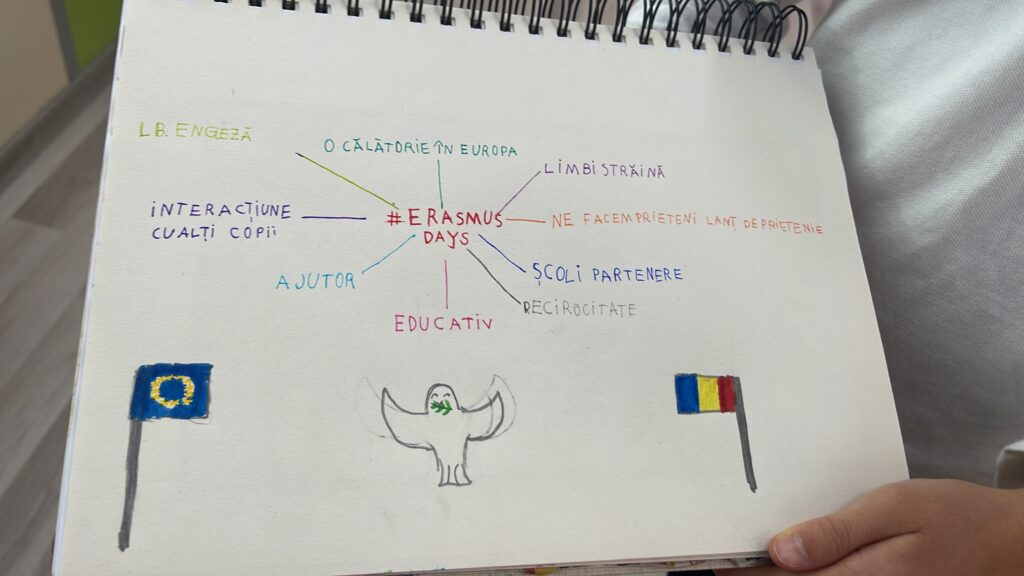 LB. ENGLEZĂ
O CĂLĂTORIE ÎN EUROPA
LIMBI STRĂINĂ
INTERACȚIUNE
CU ALȚI COPII
#ERASMUS
DAYS
NE FACEM PRIETENI LANȚ DE PRIETENIE
AJUTOR
ȘCOLI PARTENERE
RECIROCITATE
EDUCATIV